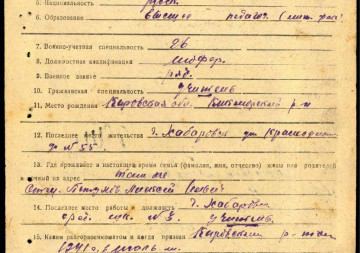 5. Национальность русск.
6. Образование высшее педагог.
7. Военно-учетная специальность 26
8. Должностная квалификация шофер.
9. Военное звание ряд.
10. Гражданская специальность учитель
11. Место рождения Кировская обл. р-н
12. Последнее место жительства г. Хабаровск ул.
д № 55.
13. Где проживает в настоящее время семья (фамилия, имя, отчество) жены или родителей
и точный их адрес там же
14. Последнее место работы и должность г. Хабаровск
сред. шк. № 3. учитель.
15. Каким райгорвоенкоматом и когда призван Кировским р-
1941 г. в м.